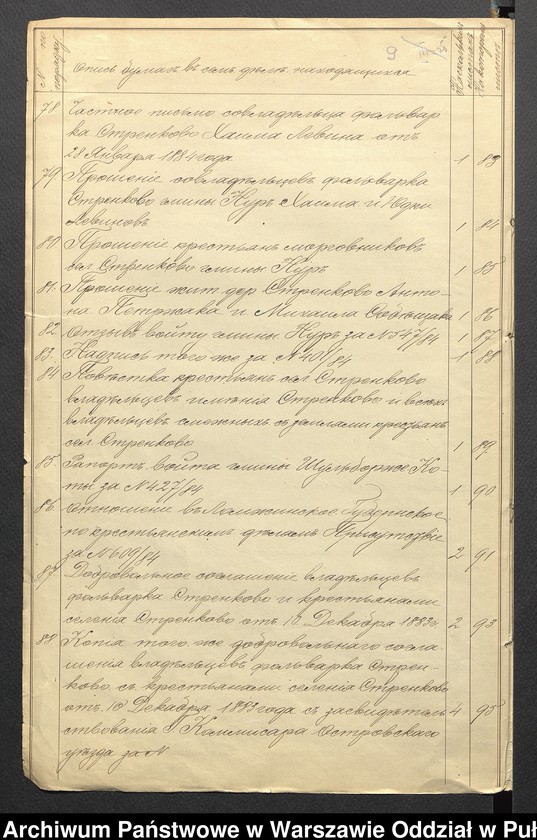 9
№ по порядку
Опись бумагъ въ семъ дѣлѣ находящихся
На которомъ
78 Частное письмо совладѣльца фольвар
ка Стренково Хаима Левина отъ
28 Января 1884 года 1 83
79 Прошеніе совладѣльцевъ фольварка
Стренково гмины Нуръ Хаима и Юдки
Левиновъ 1 84
80. Прошеніе крестьянъ морговниковъ
сел. Стренково гмины Нуръ 1 85
81. Прошеніе жит. дер. Стренково Анто-
на Петржака и Михаила 1 86
82. Отзывъ войту гмины Нуръ за № 547/84 1 87
83. Надпись того же за № 40/84 1 88
84. Повѣстка крестьянъ сел. Стренково
владѣльцевъ имѣнія Стренково и всѣхъ
владѣльцевъ смежныхъ съ землями крестьянъ
сел. Стренково 1 89
85. Рапортъ войта гмины Шульборже Ко-
ты за № 427/84 1 90
86. Отношеніе въ Ломжинское Губернское
по крестьянскимъ дѣламъ Присутствіе
за № 609/84 2 91
87. Добровольное соглашеніе владѣльцевъ
фольварка Стренково и крестьянами
селенія Стренково отъ 10 Декабря 1883 г. 2 93
88. Копія того же добровольнаго согла-
шенія владѣльцевъ фольварка Стрен-
ково съ крестьянами селенія Стренково
отъ 10 Декабря 1883 года съ засвидѣтель 4 95
ствованія Г. Коммисара Островскаго
уѣзда за №
Archiwum Państwowe w Warszawie Oddział w Puł